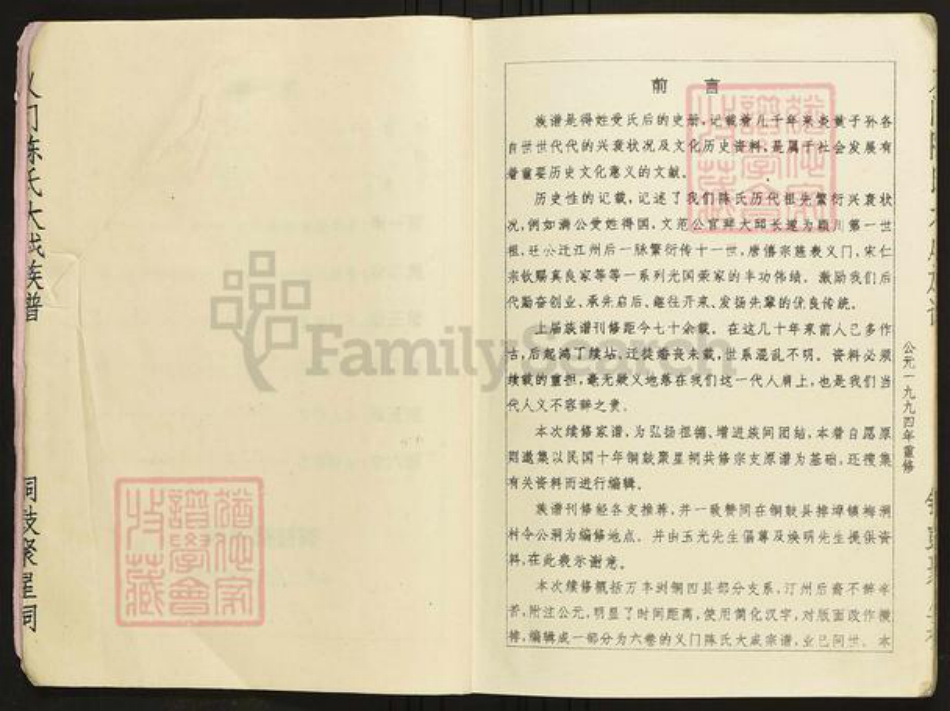 前言
族谱是得姓受氏后的史册，记载着几千年来炎黄子孙各
自世世代代的兴衰状况及文化历史资料，是属于社会发展有
着重要历史文化意义的文献。
历史性的记载，记述了我们陈氏历代祖先繁衍兴衰状
况，例如满公受姓得国，文范公官拜大邱长遂为颖川第一世
祖，旺公迁江州后一脉繁衍传十一世，唐僖宗旌表义门，宋仁
宗敕赐真良家等等一系列光国荣家的丰功伟绩。激励我们后
代勤奋创业、承先启后、继往开来、发扬先辈的优良传统。
上届族谱刊修距今七十余载。在这几十年来前人已多作
古，后起鸿丁续站，迁徙婚丧未载，世系混乱不明。资料必须
续载的重担，毫无疑义地落在我们这一代人肩上，也是我们当
代人义不容辞之责。
本次续修家谱，为弘扬祖德、增进族间团结，本着自愿原
则邀集以民国十年铜鼓聚星祠共修宗支原谱为基础，还搜集
有关资料而进行编辑。
族谱刊修经各支推荐，并一致赞同在铜鼓县排埠镇梅洞
村令公洞为编修地点。并由玉光先生倡尊及焕明先生提供资
料，在此表示谢意。
本次续修概括万丰浏铜四县部分支系，汀州后裔不辞辛
苦，附注公元，明显了时间距离，使用简化汉字，对版面改作横
排，编辑成一部分为六卷的义门陈氏大成宗谱，业已问世。本
公元一九九四年重修
义门陈氏大成族谱
铜鼓聚星祠
犹他家
谱学会
收藏
犹他家
谱学会
收藏
FamilySearch